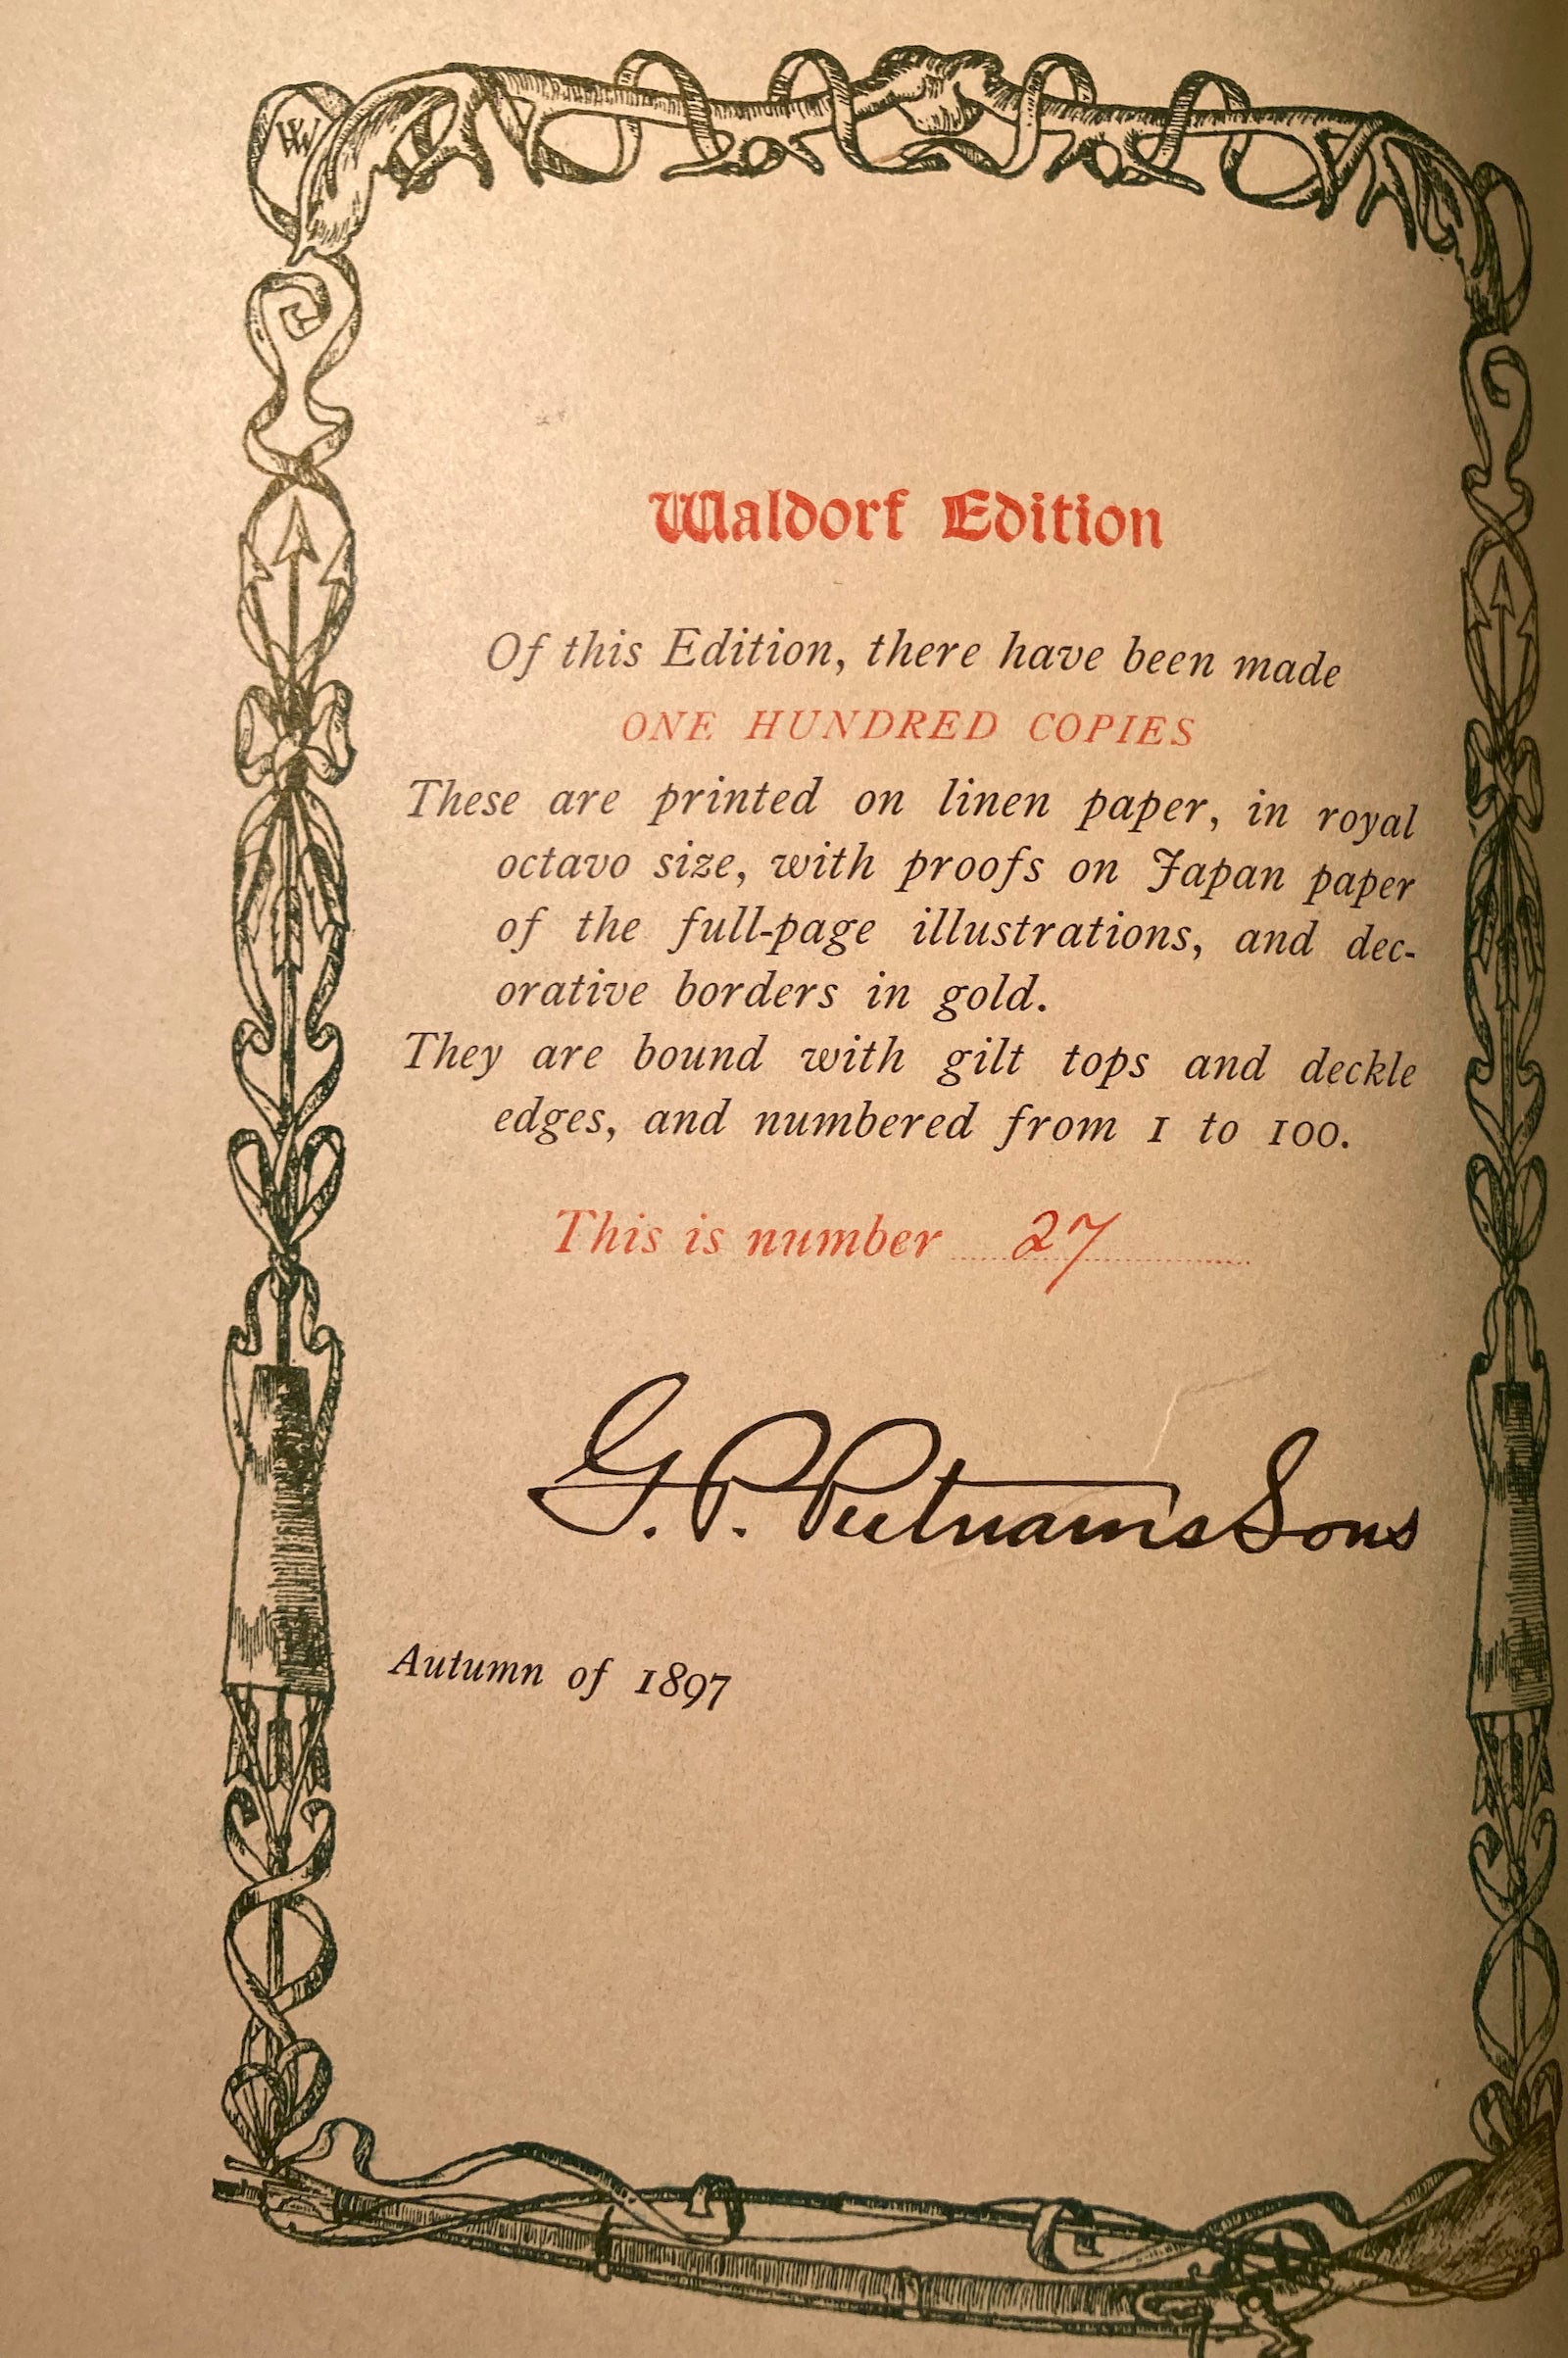 Waldorf Edition
Of this Edition, there have been made
ONE HUNDRED COPIES
These are printed on linen paper, in royal
octavo size, with proofs on Japan paper
of the full-page illustrations, and dec-
orative borders in gold.
They are bound with gilt tops and deckle
edges, and numbered from 1 to 100.
This is number 27
G. P. Putnam's Sons
Autumn of 1897